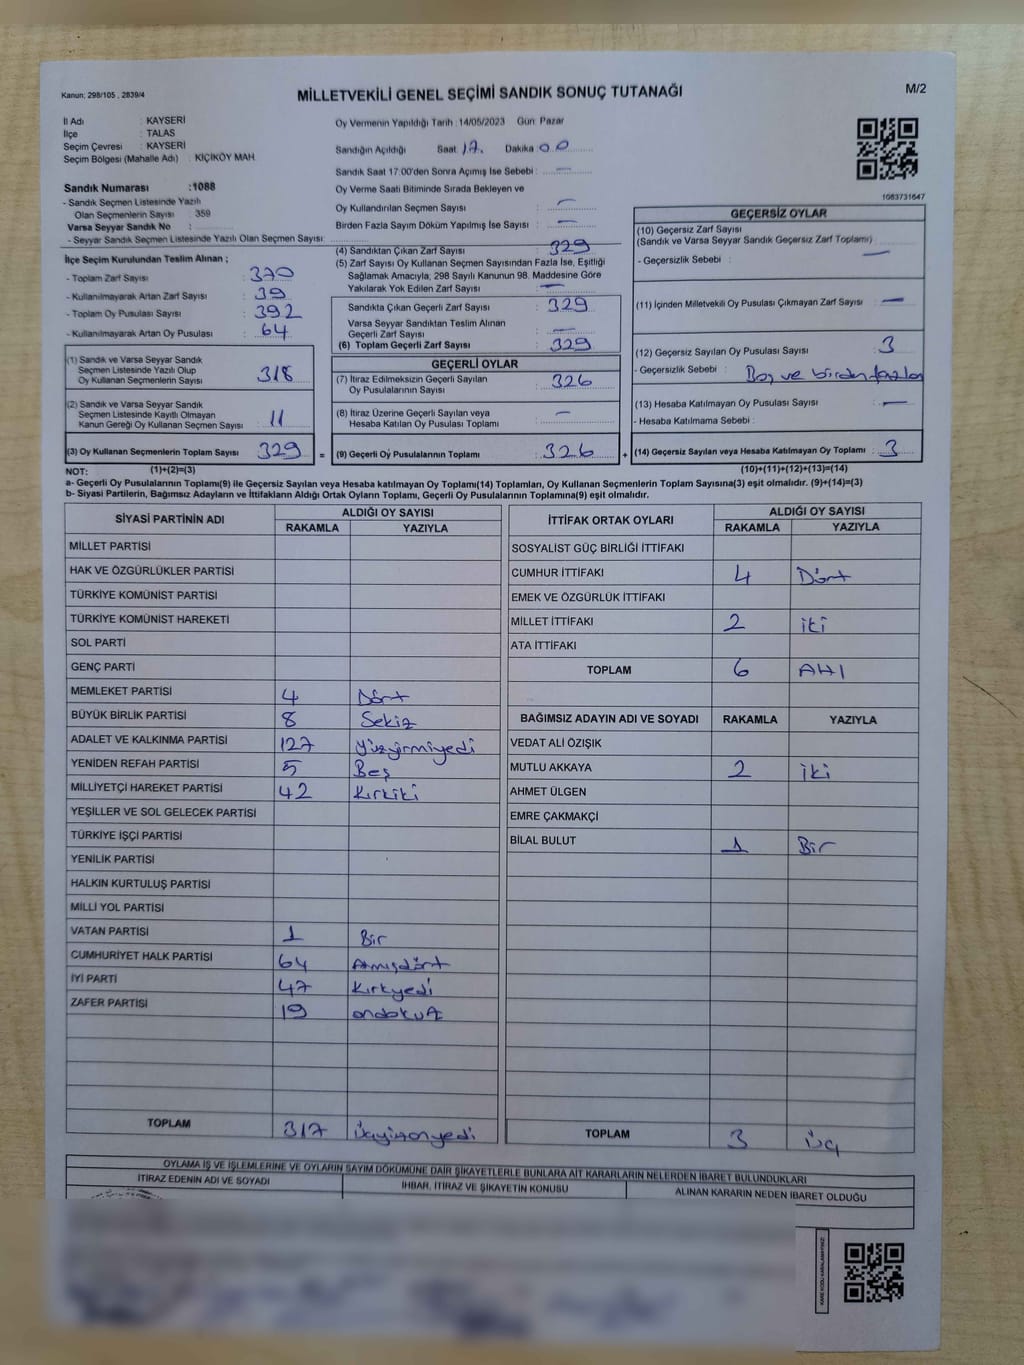 Kanun: 298/105 , 2839/4
MİLLETVEKİLİ GENEL SEÇİMİ SANDIK SONUÇ TUTANAĞI
M/2
İl Adı : KAYSERİ
İlçe : TALAS
Seçim Çevresi : KAYSERİ
Seçim Bölgesi (Mahalle Adı) : KIÇIKÖY MAH.
Sandık Numarası :1088
- Sandık Seçmen Listesinde Yazılı
Olan Seçmenlerin Sayısı : 359
Varsa Seyyar Sandık No :
- Seyyar Sandık Seçmen Listesinde Yazılı Olan Seçmen Sayısı:
İlçe Seçim Kurulundan Teslim Alınan ;
- Toplam Zarf Sayısı : 370
- Kullanılmayarak Artan Zarf Sayısı : 39
- Toplam Oy Pusulası Sayısı : 392
- Kullanılmayarak Artan Oy Pusulası : 64
(1) Sandık ve Varsa Seyyar Sandık
Seçmen Listesinde Yazılı Olup
Oy Kullanan Seçmenlerin Sayısı : 318
(2) Sandık ve Varsa Seyyar Sandık
Seçmen Listesinde Kayıtlı Olmayan
Kanun Gereği Oy Kullanan Seçmen Sayısı : 11
(3) Oy Kullanan Seçmenlerin Toplam Sayısı : 329
Oy Vermenin Yapıldığı Tarih : 14/05/2023 Gün: Pazar
Sandığın Açıldığı Saat 17. Dakika 00
Sandık Saat 17.00'den Sonra Açımış İse Sebebi : —
Oy Verme Saati Bitiminde Sırada Bekleyen ve
Oy Kullandırılan Seçmen Sayısı : —
Birden Fazla Sayım Döküm Yapılmış İse Sayısı : —
(4) Sandıktan Çıkan Zarf Sayısı : 329
(5) Zarf Sayısı Oy Kullanan Seçmen Sayısından Fazla İse, Eşitliği
Sağlamak Amacıyla, 298 Sayılı Kanunun 98. Maddesine Göre
Yakılarak Yok Edilen Zarf Sayısı : —
Sandıkta Çıkan Geçerli Zarf Sayısı : 329
Varsa Seyyar Sandıktan Teslim Alınan
Geçerli Zarf Sayısı : —
(6) Toplam Geçerli Zarf Sayısı : 329
GEÇERLİ OYLAR
(7) İtiraz Edilmeksizin Geçerli Sayılan
Oy Pusulalarının Sayısı : 326
(8) İtiraz Üzerine Geçerli Sayılan veya
Hesaba Katılan Oy Pusulası Toplamı : —
= (9) Geçerli Oy Pusulalarının Toplamı : 326 +
1083731647
GEÇERSİZ OYLAR
(10) Geçersiz Zarf Sayısı
(Sandık ve Varsa Seyyar Sandık Geçersiz Zarf Toplamı) : —
- Geçersizlik Sebebi :
(11) İçinden Milletvekili Oy Pusulası Çıkmayan Zarf Sayısı : —
(12) Geçersiz Sayılan Oy Pusulası Sayısı : 3
- Geçersizlik Sebebi : Boş ve birden fazla
(13) Hesaba Katılmayan Oy Pusulası Sayısı : —
- Hesaba Katılmama Sebebi :
(14) Geçersiz Sayılan veya Hesaba Katılmayan Oy Toplamı : 3
NOT: (1)+(2)=(3) (10)+(11)+(12)+(13)=(14)
a- Geçerli Oy Pusulalarının Toplamı(9) ile Geçersiz Sayılan veya Hesaba katılmayan Oy Toplamı(14) Toplamları, Oy Kullanan Seçmenlerin Toplam Sayısına(3) eşit olmalıdır. (9)+(14)=(3)
b- Siyasi Partilerin, Bağımsız Adayların ve İttifakların Aldığı Ortak Oyların Toplamı, Geçerli Oy Pusulalarının Toplamına(9) eşit olmalıdır.
SİYASİ PARTİNİN ADI ALDIĞI OY SAYISI
RAKAMLA YAZIYLA
MİLLET PARTİSİ
HAK VE ÖZGÜRLÜKLER PARTİSİ
TÜRKİYE KOMÜNİST PARTİSİ
TÜRKİYE KOMÜNİST HAREKETİ
SOL PARTİ
GENÇ PARTİ
MEMLEKET PARTİSİ 4 Dört
BÜYÜK BİRLİK PARTİSİ 8 Sekiz
ADALET VE KALKINMA PARTİSİ 127 Yüzyirmiyedi
YENİDEN REFAH PARTİSİ 5 Beş
MİLLİYETÇİ HAREKET PARTİSİ 42 Kırkiki
YEŞİLLER VE SOL GELECEK PARTİSİ
TÜRKİYE İŞÇİ PARTİSİ
YENİLİK PARTİSİ
HALKIN KURTULUŞ PARTİSİ
MİLLİ YOL PARTİSİ
VATAN PARTİSİ 1 Bir
CUMHURİYET HALK PARTİSİ 64 Atmışdört
İYİ PARTİ 47 Kırkyedi
ZAFER PARTİSİ 19 ondokuz
TOPLAM 317 Üçyüzonyedi
İTTİFAK ORTAK OYLARI ALDIĞI OY SAYISI
RAKAMLA YAZIYLA
SOSYALİST GÜÇ BİRLİĞİ İTTİFAKI
CUMHUR İTTİFAKI 4 Dört
EMEK VE ÖZGÜRLÜK İTTİFAKI
MİLLET İTTİFAKI 2 iki
ATA İTTİFAKI
TOPLAM 6 Altı
BAĞIMSIZ ADAYIN ADI VE SOYADI RAKAMLA YAZIYLA
VEDAT ALİ ÖZIŞIK
MUTLU AKKAYA 2 iki
AHMET ÜLGEN
EMRE ÇAKMAKÇİ
BİLAL BULUT 1 Bir
TOPLAM 3 üç
OYLAMA İŞ VE İŞLEMLERİNE VE OYLARIN SAYIM DÖKÜMÜNE DAİR ŞİKAYETLERLE BUNLARA AİT KARARLARIN NELERDEN İBARET BULUNDUKLARI
İTİRAZ EDENİN ADI VE SOYADI İHBAR, İTİRAZ VE ŞİKAYETİN KONUSU ALINAN KARARIN NEDEN İBARET OLDUĞU